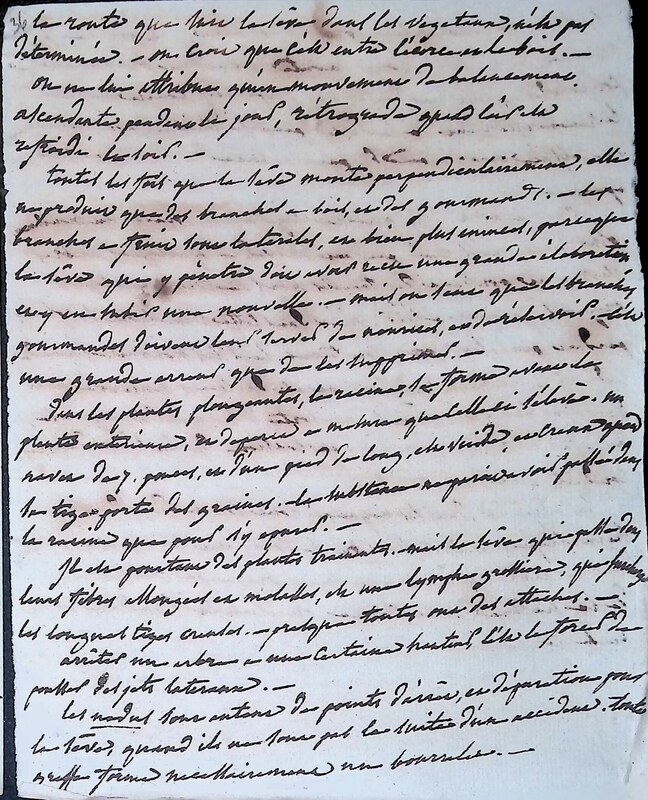 la route que suit la sève dans les vegetaux, n'est pas
déterminée. - on croit que c'est entre l'écorce et le bois. -
on ne lui attribue qu'un mouvement de balancement,
ascendante pendant le jour, rétrograde quand l'air est
refroidi le soir. -
toutes les fois que la sève monte perpendiculairement, elle
ne produit que des branches a bois, et des gourmands. - les
branches a fruit sont laterales, et bien plus minces, parceque
la sève qui y pénètre doit avoir reçu une grande élaboration
et y en subit une nouvelle. - mais on sent que les branches
gourmandes doivent leur servir de nourrices, et de réservoir. - c'est
une grande erreur que de les supprimer. -
dans les plantes plongeantes, la racine, se forme avant la
plante exterieure, et deperit a mesure que celle ci s'élève. un
navet de 7. pouces, et d'un pied de long, est vuide, et creux quand
la tige porte des graines. la substance ne parait avoir passé dans
la racine que pour s'y epurer. -
Il est pourtant des plantes trainantes. mais la sève qui passe dans
leurs fibres allongées et molasses, est une lymphe grossiere, que
les longues tiges creuses. - presque toutes ont des attaches. -
arrêter un arbre a une certaine hauteur, c'est le forcer de
pousser des jets lateraux. -
les nodus sont autant de points d'arrêt, et d'épuration pour
la sève, quand ils ne sont pas la suite d'un accident. toute
greffe forme necessairement un bourrelet. -